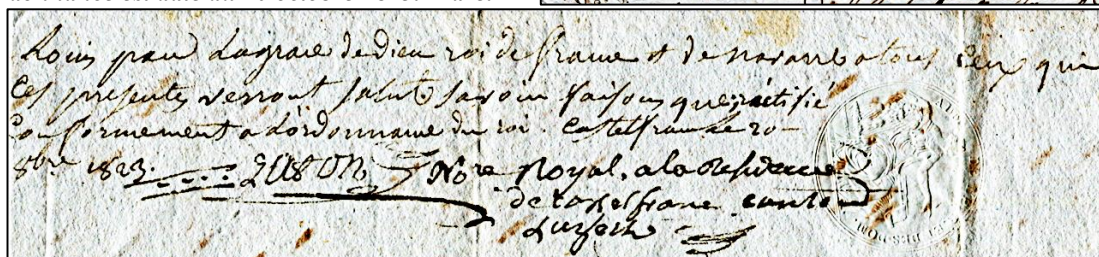 Louis par La grace de dieu roi de france et de navarre a tous Ceux qui
Ces presentes verront Salut Savoir faisons que rectifié
Conformement a L'ordonnance du roi. Castelfranc le 20
8bre 1823.
Nore Royal, a la Residence
de Castelfranc canton
Luzech